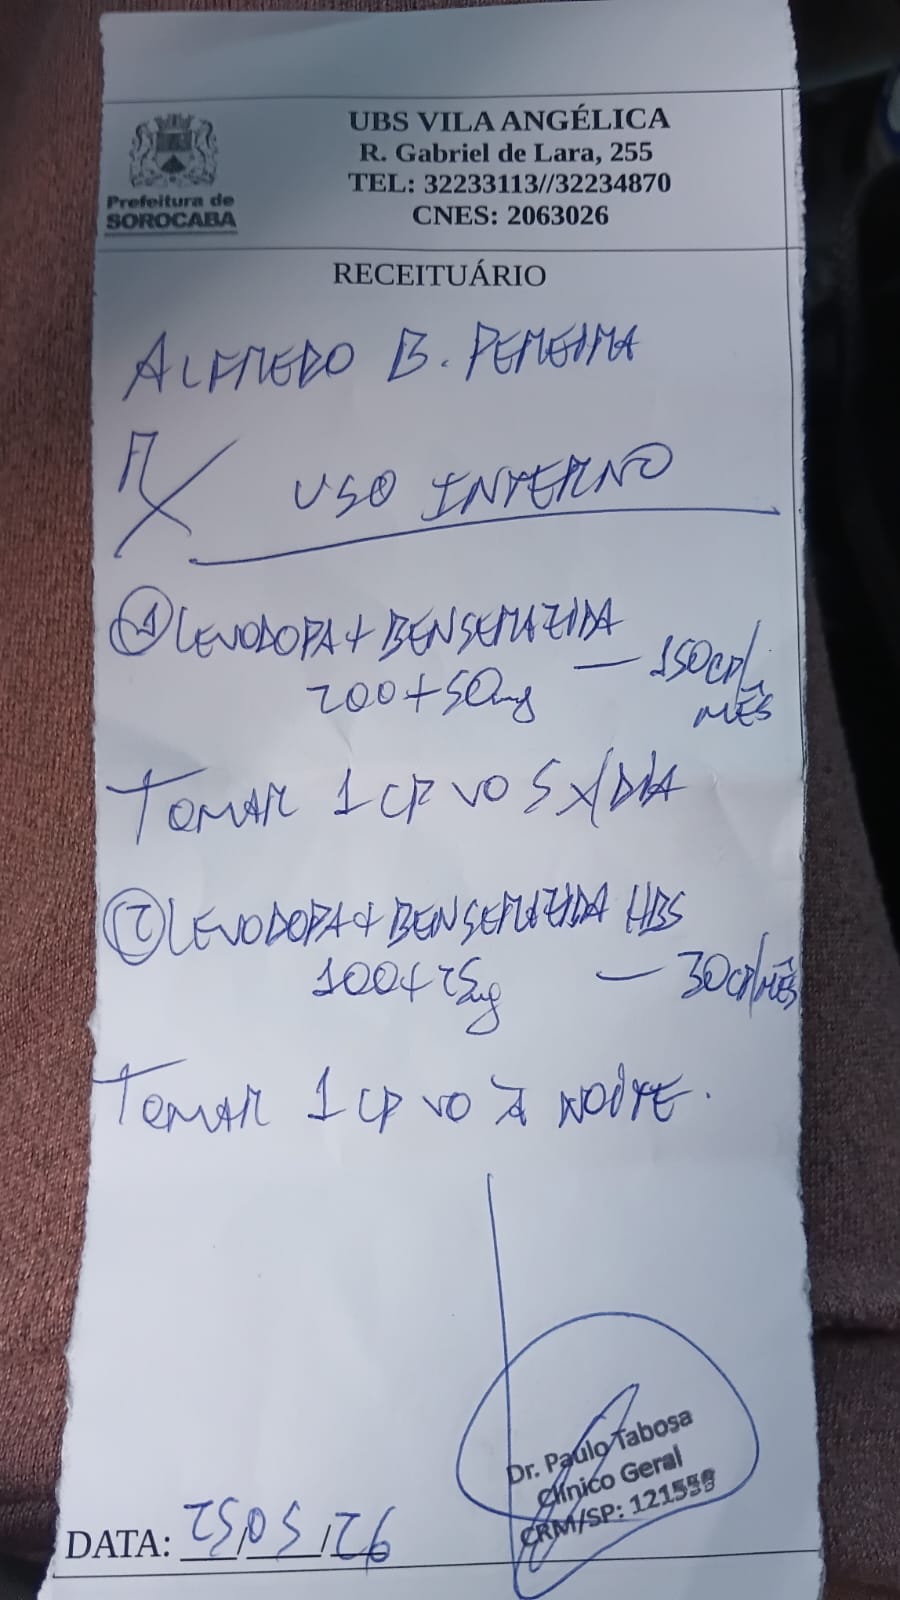 Prefeitura de
SOROCABA
UBS VILA ANGÉLICA
R. Gabriel de Lara, 255
TEL: 32233113//32234870
CNES: 2063026
RECEITUÁRIO
ALFREDO B. PEREIRA
R/
USO INTERNO
1 LEVODOPA + BENSERAZIDA
200+50mg — 150CP/
MÊS
TOMAR 1 CP VO 5 X/DIA
2 LEVODOPA + BENSERAZIDA HBS
100+25mg — 30CP/MÊS
TOMAR 1 CP VO À NOITE.
Dr. Paulo Tabosa
Clínico Geral
CRM/SP:
DATA: 25/05/26